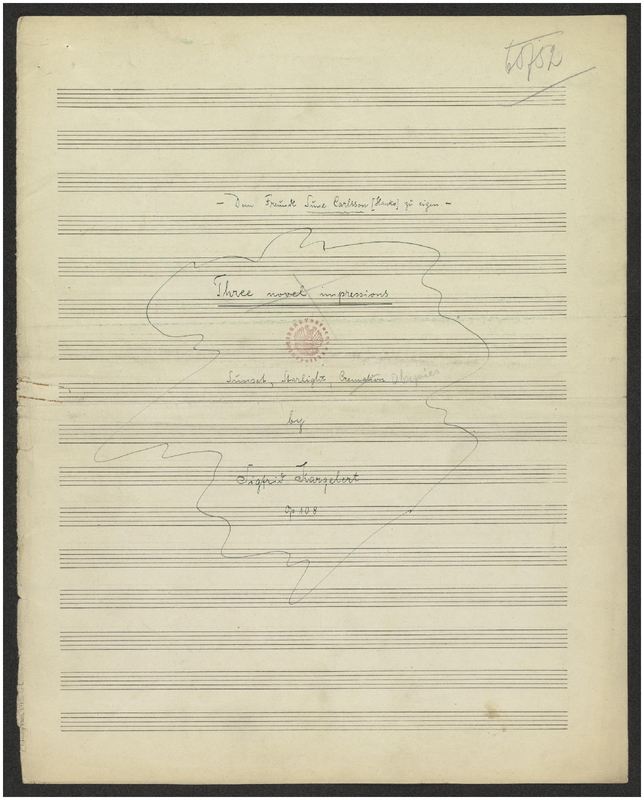 – Dem Freunde Sune Carlsson [Hanko] zu eigen –
Three novel impressions
Sunset, Starlight, Cremation Obsequies
by
Sigfrid Karg Elert
Op 108